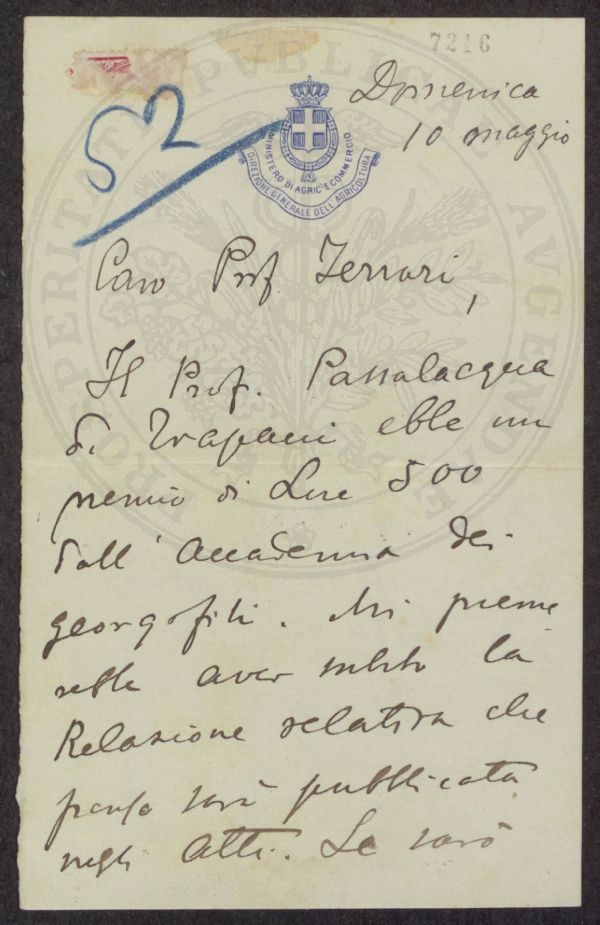 7216
Domenica
10 maggio
52
MINISTERO DI AGRIC. E COMMERCIO
DIREZIONE GENERALE DELL'AGRICOLTURA
Caro Prof Ferrari,
Il Prof. Passalacqua
di Trapani ebbe un
premio di Lire 500
dall' Accademia dei
georgofili. Mi preme
rebbe aver subito la
Relazione relativa che
penso sarà pubblicata
negli Atti. Le sarò
PROSPERITATI PVBLICAE AVGENDAE